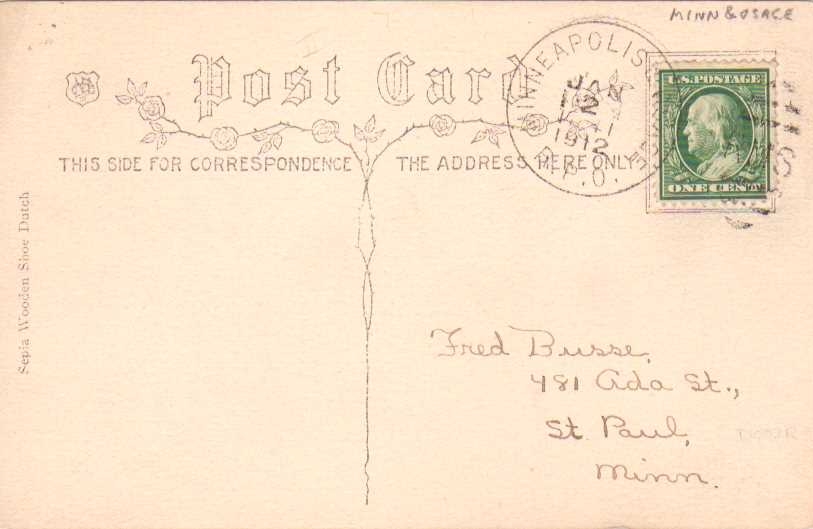 MINN & OSAGE
Post Card
MINNEAPOLIS & OSAGE
JAN
2
1912
R.P.O.
U.S. POSTAGE
ONE CENT
THIS SIDE FOR CORRESPONDENCE
THE ADDRESS HERE ONLY
Sepia Wooden Shoe Dutch
Fred Busse,
481 Ada St.,
St. Paul,
Minn.